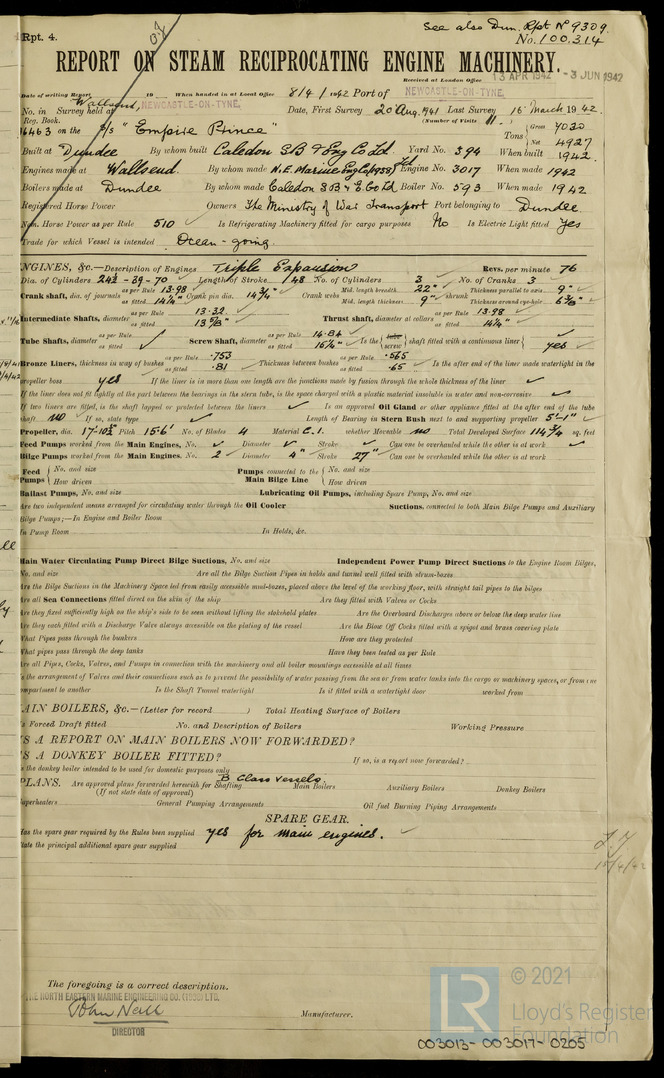 see also Dun. Rpt No 9309.
Rpt. 4.
No. 100.314
REPORT ON STEAM RECIPROCATING ENGINE MACHINERY.
Received at London Office 13 APR 1942 - 3 JUN 1942
Date of writing Report 19 When handed in at Local Office 8/4/1942 Port of NEWCASTLE-ON-TYNE.
No. in Survey held at Wallsend, NEWCASTLE-ON-TYNE. Date, First Survey 20 Aug. 941 Last Survey 16 March 1942.
Reg. Book. (Number of Visits 11.)
on the S/S "Empire Prince" Tons { Gross 7030 Net 4927
Built at Dundee By whom built Caledon SB & Eng Co Ld. Yard No. 394 When built 1942.
Engines made at Wallsend. By whom made N.E. Marine Eng Co (1938) Ld Engine No. 3017 When made 1942
Boilers made at Dundee By whom made Caledon SB & E. Co Ld. Boiler No. 593 When made 1942.
Registered Horse Power Owners The Ministry of War Transport Port belonging to Dundee.
Nom. Horse Power as per Rule 510 Is Refrigerating Machinery fitted for cargo purposes No Is Electric Light fitted yes
Trade for which Vessel is intended Ocean-going.
ENGINES, &c.—Description of Engines Triple Expansion Revs. per minute 76
Dia. of Cylinders 24½ - 39 - 70 Length of Stroke 48 No. of Cylinders 3 No. of Cranks 3
Crank shaft, dia. of journals as per Rule 13.98 as fitted 14¼" Crank pin dia. 14¾" Crank webs Mid. length breadth 22" Mid. length thickness 9" shrunk Thickness parallel to axis 9" Thickness around eye-hole 6⅝"
Intermediate Shafts, diameter as per Rule 13.32 as fitted 13⅝" Thrust shaft, diameter at collars as per Rule 13.98 as fitted 14¼"
Tube Shafts, diameter as per Rule as fitted Screw Shaft, diameter as per Rule 14.84 as fitted 15¼" Is the { tube screw } shaft fitted with a continuous liner { yes
Bronze Liners, thickness in way of bushes as per Rule .753 as fitted .81 Thickness between bushes as per Rule .565 as fitted .65 Is the after end of the liner made watertight in the
propeller boss yes If the liner is in more than one length are the junctions made by fusion through the whole thickness of the liner
If the liner does not fit tightly at the part between the bearings in the stern tube, is the space charged with a plastic material insoluble in water and non-corrosive
If two liners are fitted, is the shaft lapped or protected between the liners Is an approved Oil Gland or other appliance fitted at the after end of the tube
shaft no If so, state type Length of Bearing in Stern Bush next to and supporting propeller 5'-1"
Propeller, dia. 17-10½ Pitch 15.6' No. of Blades 4 Material C.I. whether Moveable no Total Developed Surface 114¾ sq. feet
Feed Pumps worked from the Main Engines, No. Diameter Stroke Can one be overhauled while the other is at work
Bilge Pumps worked from the Main Engines, No. 2 Diameter 4" Stroke 27" Can one be overhauled while the other is at work
Feed Pumps { No. and size How driven Pumps connected to the Main Bilge Line { No. and size How driven
Ballast Pumps, No. and size Lubricating Oil Pumps, including Spare Pump, No. and size
Are two independent means arranged for circulating water through the Oil Cooler Suctions, connected to both Main Bilge Pumps and Auxiliary
Bilge Pumps;—In Engine and Boiler Room
In Pump Room In Holds, &c.
Main Water Circulating Pump Direct Bilge Suctions, No. and size Independent Power Pump Direct Suctions to the Engine Room Bilges,
No. and size Are all the Bilge Suction Pipes in holds and tunnel well fitted with strum-boxes
Are the Bilge Suctions in the Machinery Space led from easily accessible mud-boxes, placed above the level of the working floor, with straight tail pipes to the bilges
Are all Sea Connections fitted direct on the skin of the ship Are they fitted with Valves or Cocks
Are they fixed sufficiently high on the ship's side to be seen without lifting the stokehold plates Are the Overboard Discharges above or below the deep water line
Are they each fitted with a Discharge Valve always accessible on the plating of the vessel Are the Blow Off Cocks fitted with a spigot and brass covering plate
What Pipes pass through the bunkers How are they protected
What pipes pass through the deep tanks Have they been tested as per Rule
Are all Pipes, Cocks, Valves, and Pumps in connection with the machinery and all boiler mountings accessible at all times
Is the arrangement of Valves and their connections such as to prevent the possibility of water passing from the sea or from water tanks into the cargo or machinery spaces, or from one
compartment to another Is the Shaft Tunnel watertight Is it fitted with a watertight door worked from
MAIN BOILERS, &c.—(Letter for record ) Total Heating Surface of Boilers
Is Forced Draft fitted No. and Description of Boilers Working Pressure
IS A REPORT ON MAIN BOILERS NOW FORWARDED?
IS A DONKEY BOILER FITTED? If so, is a report now forwarded?
Is the donkey boiler intended to be used for domestic purposes only
B Class Vessels.
PLANS. Are approved plans forwarded herewith for Shafting Main Boilers Auxiliary Boilers Donkey Boilers
(If not state date of approval)
Superheaters General Pumping Arrangements Oil fuel Burning Piping Arrangements
SPARE GEAR.
Has the spare gear required by the Rules been supplied yes for main engines.
State the principal additional spare gear supplied
The foregoing is a correct description.
THE NORTH EASTERN MARINE ENGINEERING CO. (1938) LTD.
John Neill
DIRECTOR
Manufacturer.
LR
© 2021
Lloyd's Register
Foundation
003013-003017-0205